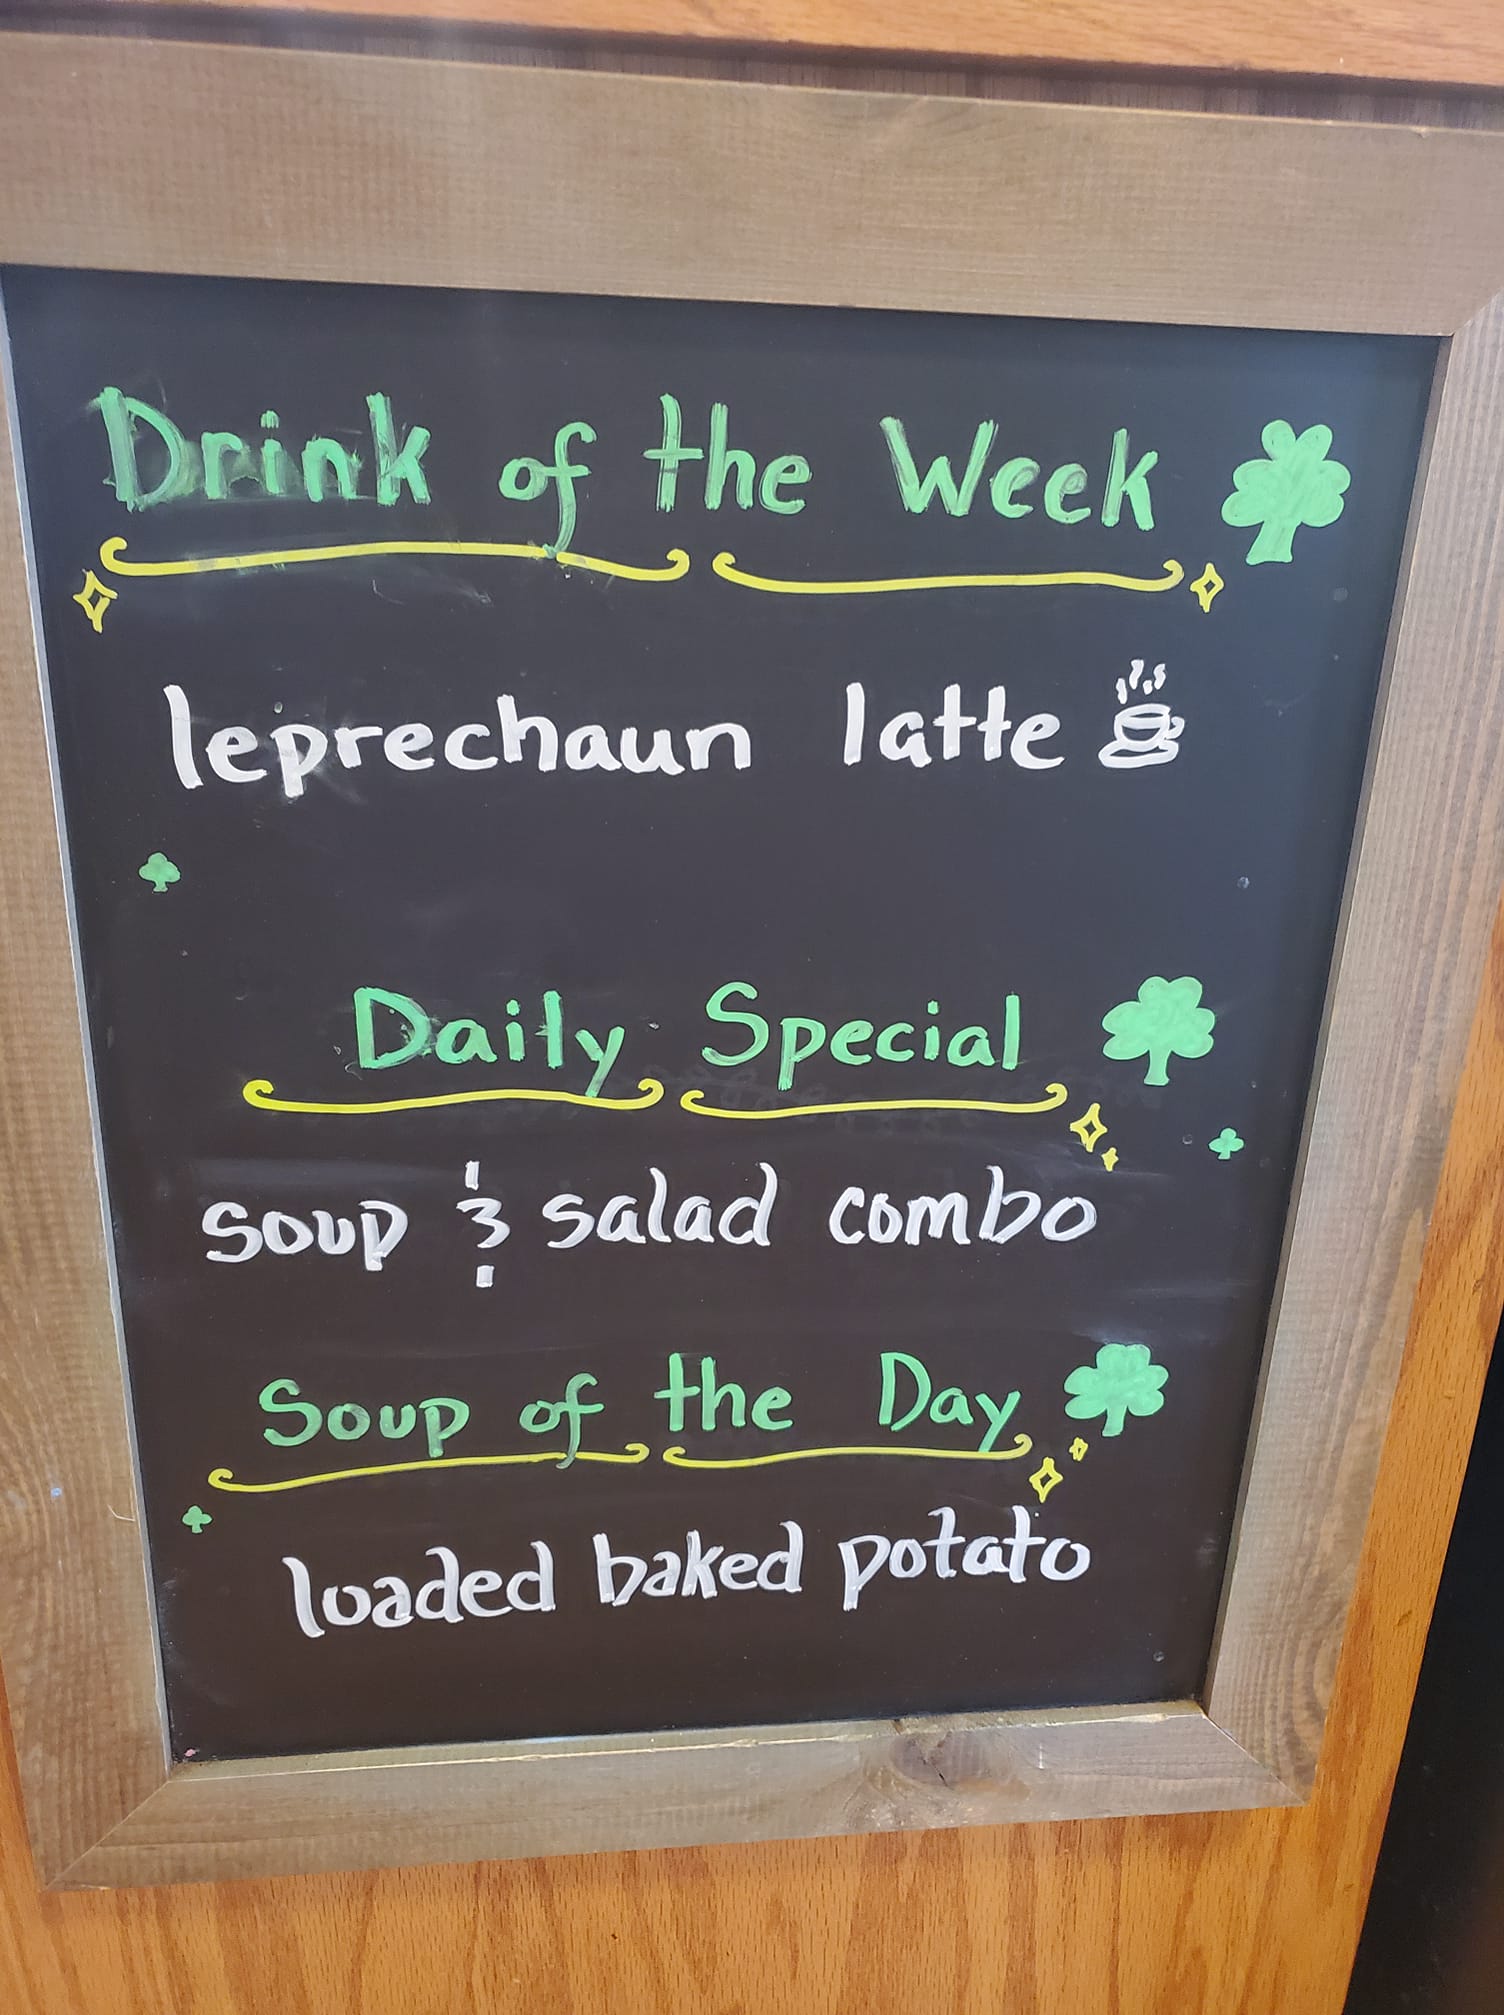 Drink of the Week
leprechaun latte
Daily Special
soup & salad combo
Soup of the Day
loaded baked potato